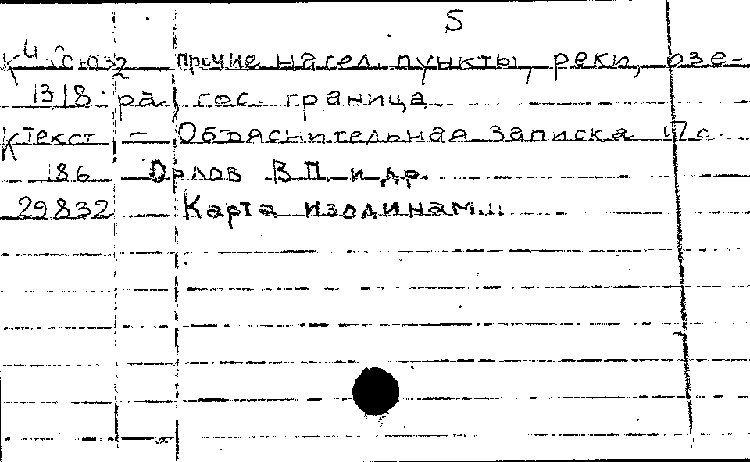 5
К4 Союз прочие насел. пункты, реки, озе-
1318 ра, гос. граница
К текст - Объяснительная записка 17 с.
186 Орлов В.П. и др.
29832 Карта изодинам...